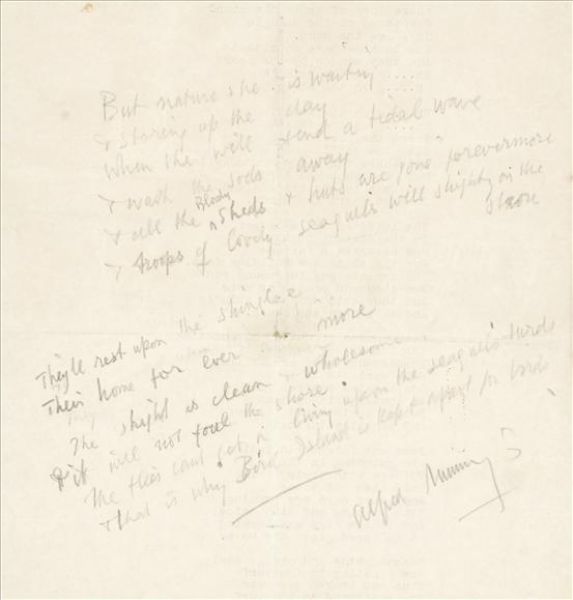 But nature she is waiting
& storing up the day
When she will send a tidal wave
& wash the sods away
& all the Bloody sheds & huts are gone forevermore
& troops of lovely seagulls will shight on the
shore
They'll rest upon the shingle
Their home for ever more
The shight is clean & wholesome
& it will not foul the shore
The flies cant get a living upon the seagulls turds
& that is why Bird Island is kept apart for birds
Alfred Munnings